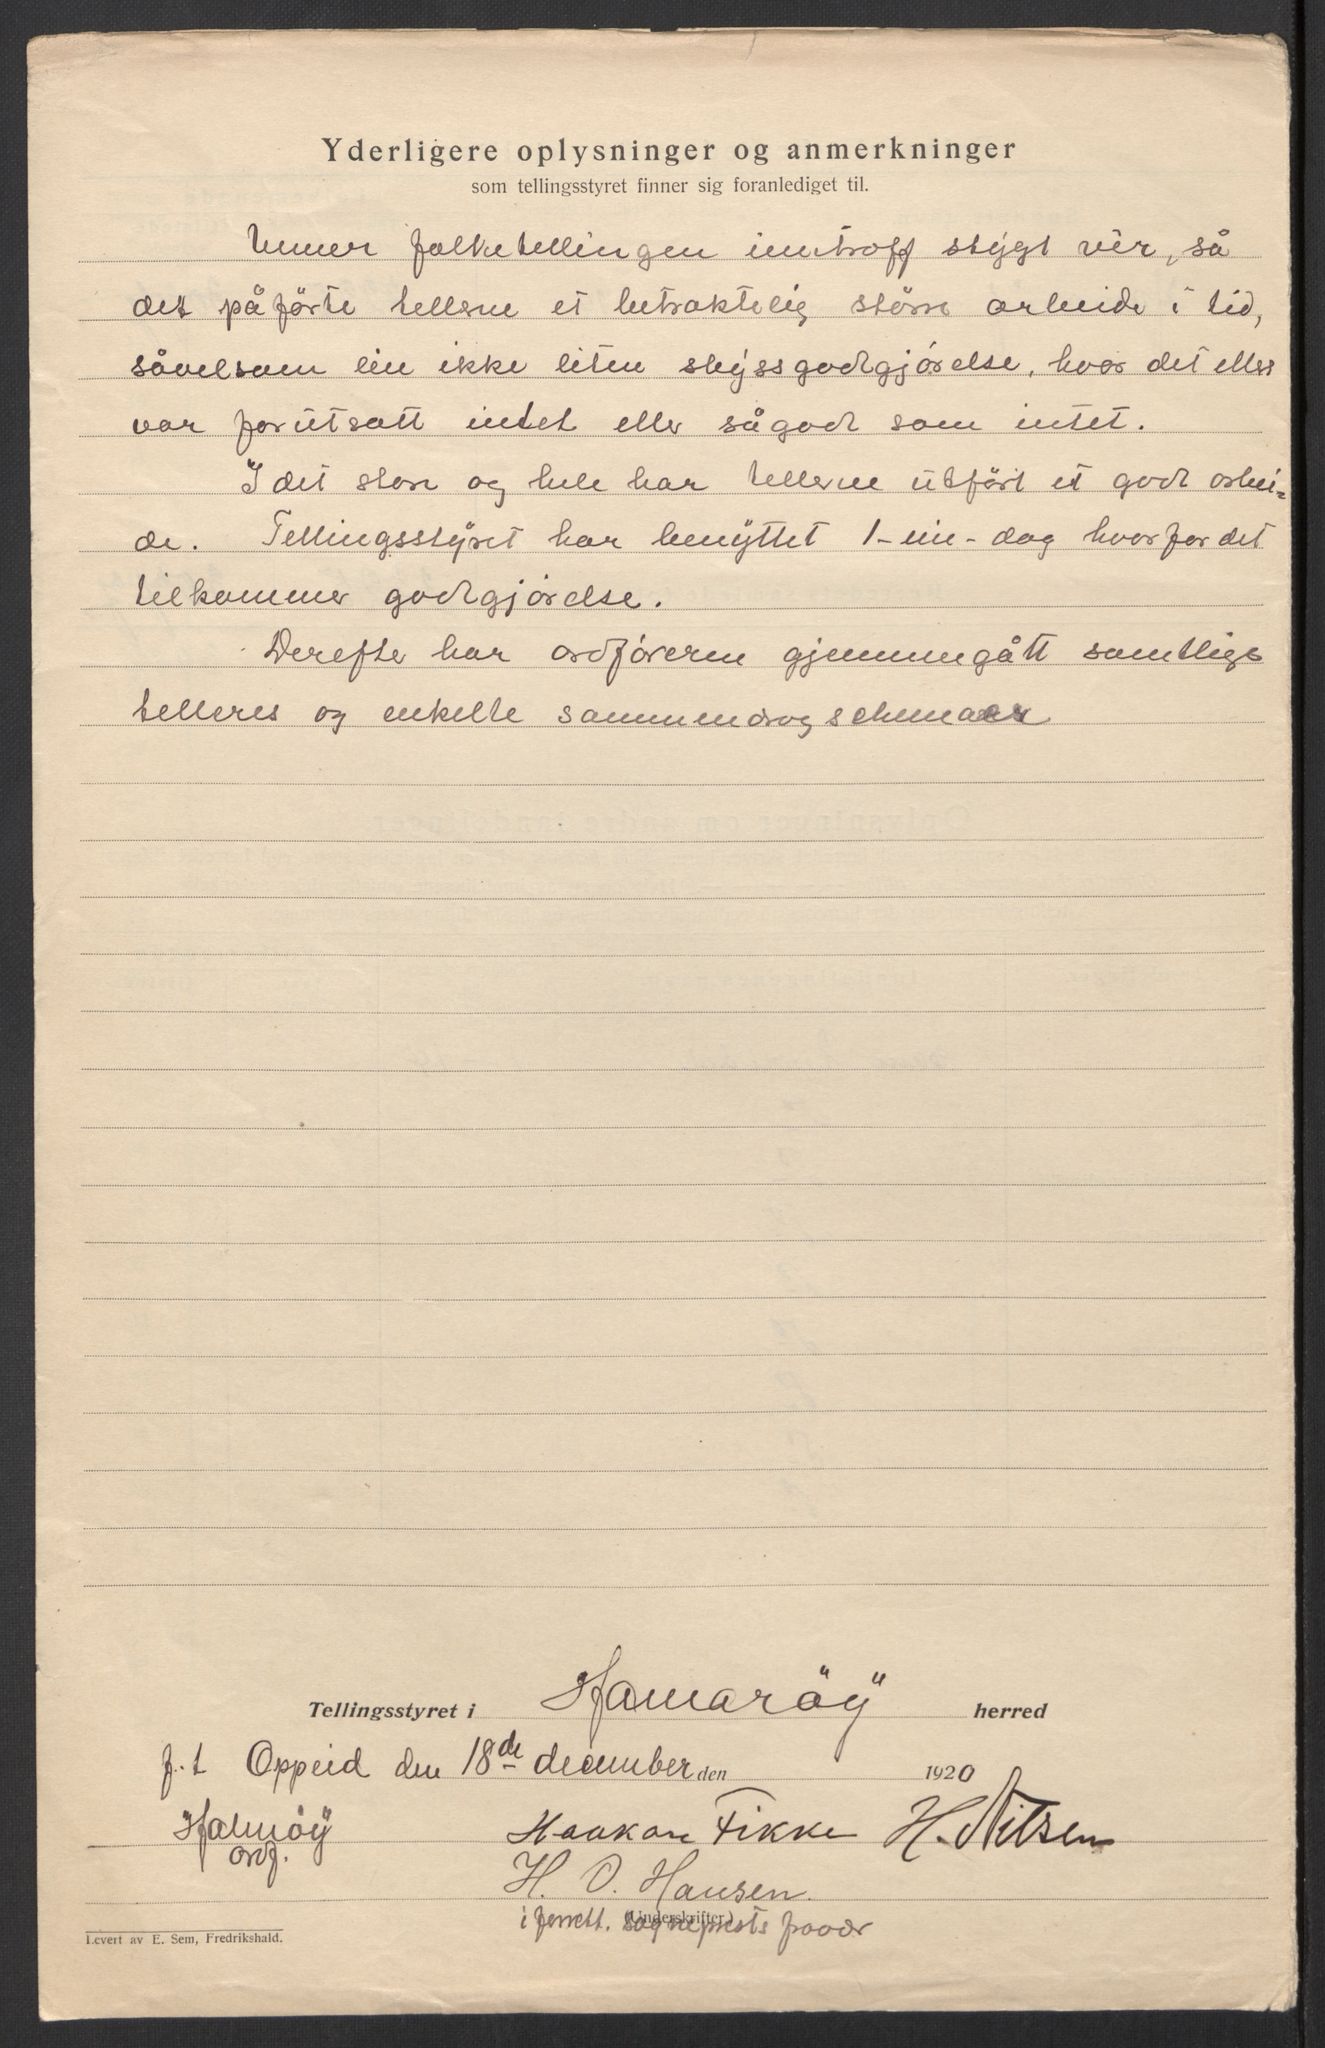 Yderligere oplysninger og anmerkninger
som tellingsstyret finner sig foranlediget til.
Unner folketellingen inntraff stygt vêr, så
det påførte tellerne et betraktelig större arbeide i tid,
såvelsom ein ikke liten skyssgodtgjørelse, hvor det ellers
var forutsatt intet eller sågodt som intet.
I det store og hele har tellerne utfört et godt arbei-
de. Tellingsstyret har benyttet 1-ein-dag hvorfor det
tilkommer godtgjörelse.
Derefter har ordföreren gjennemgått samtlige
telleres og enkelte sammendrag schemaer
Tellingsstyret i Hamaröy herred
f.t Oppeid den 18de december den 1920
Halmöy Haakon Fikke H. Nilsen
ordf.
H. O. Hansen.
(Underskrifter.)
i forrett. sogneprests fravær
Levert av E. Sem, Fredrikshald.